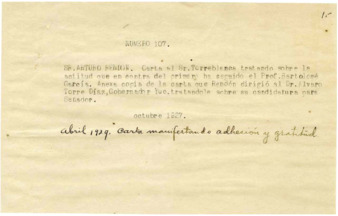 1.-
NUMERO 107.
SR. ARTURO RENDON. Carta al Sr. Torreblanca tratando sobre la
actitud que en contra del primero ha asumido el Prof. Bartolomé
García. Anexa copia de la carta que Rendón dirigió al Sr. Alvaro
Torre Díaz, Gobernador Yuc. tratandole sobre su candidatura para
Senador.
octubre 1927.
Abril 1929. Carta manifestando adhesión y gratitud.